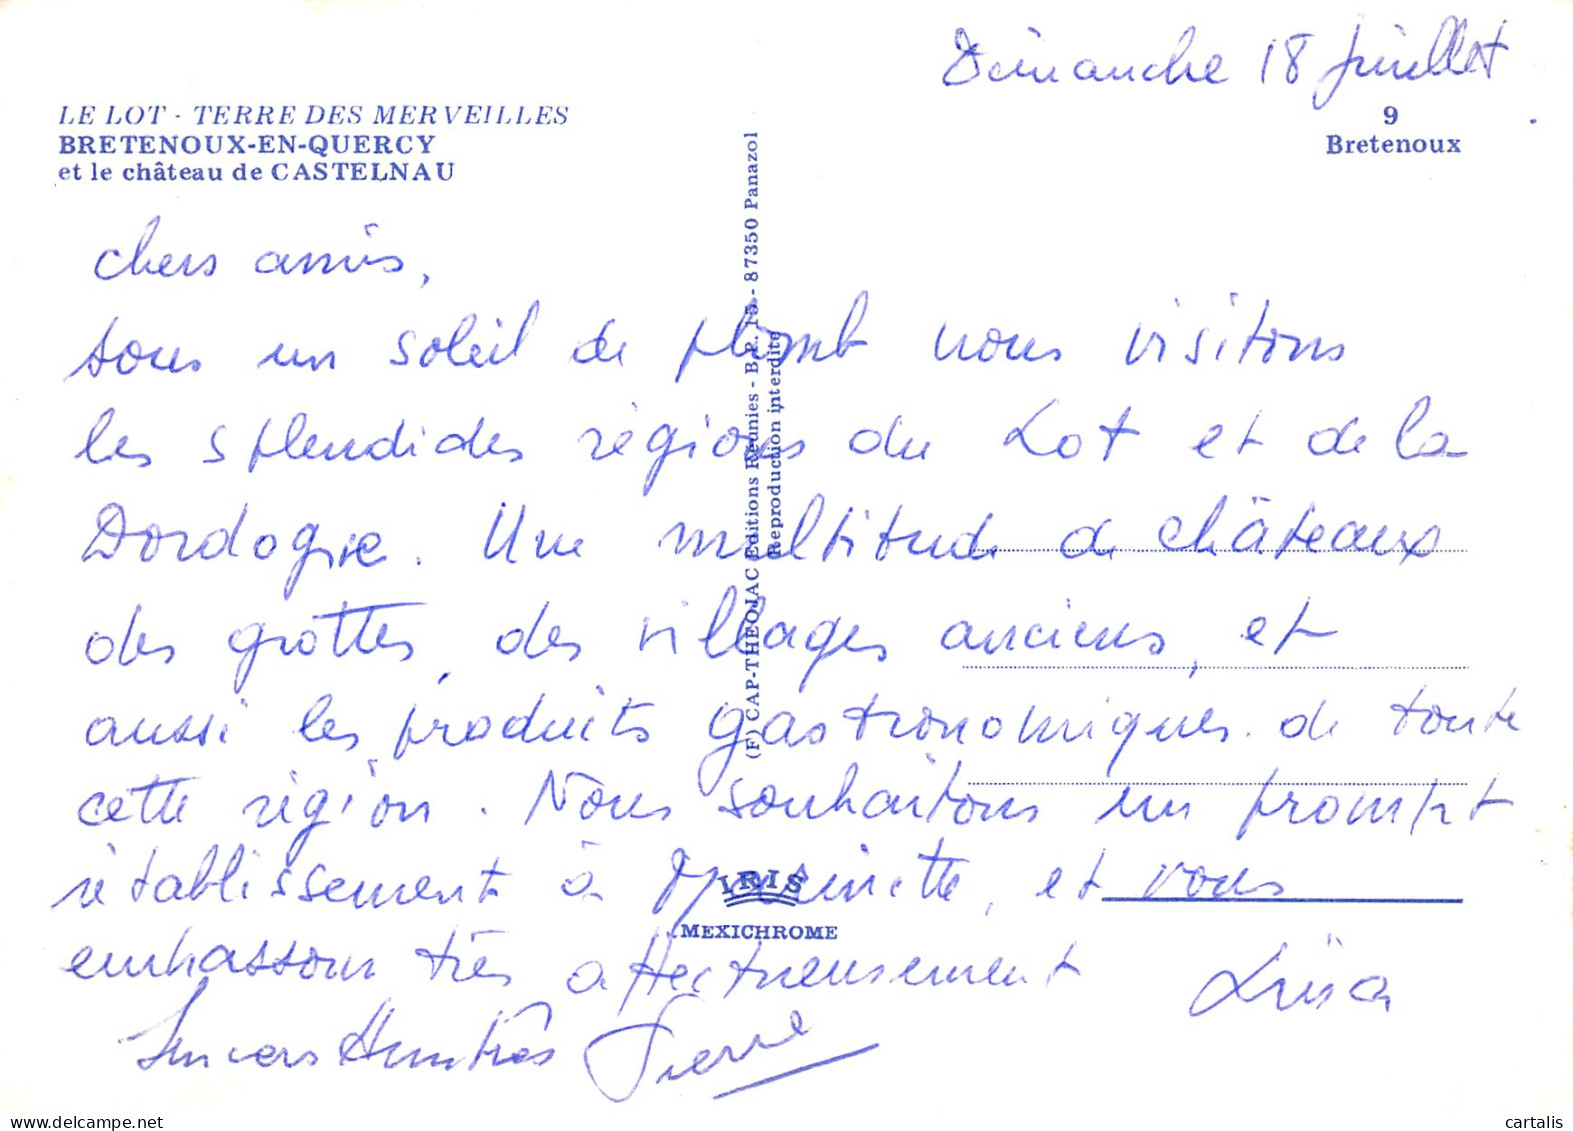 Dimanche 18 juillet
LE LOT - TERRE DES MERVEILLES
BRETENOUX-EN-QUERCY
et le château de CASTELNAU
9
Bretenoux
chers amis,
sous un soleil de plomb nous visitons
les splendides régions du Lot et de la
Dordogne. Une multitude de châteaux
des grottes, des villages anciens, et
aussi les produits gastronomiques de toute
cette région. Nous souhaitons un prompt
rétablissement à et vous
embrassons très affectueusement
Luisa
Pierre
(F) CAP-THEOJAC Editions Réunies - B.P. 15 - 87350 Panazol
Reproduction interdite
IRIS
MEXICHROME
delcampe.net
cartalis